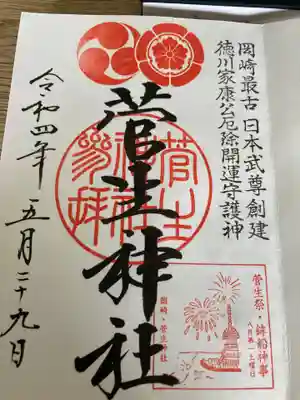 岡崎最古 日本武尊創建
徳川家康公厄除開運守護神
菅生神社
参拝
菅生神社
令和四年 五月二十九日
菅生祭・鉾船神事
八月第一土曜日
岡崎・菅生神社